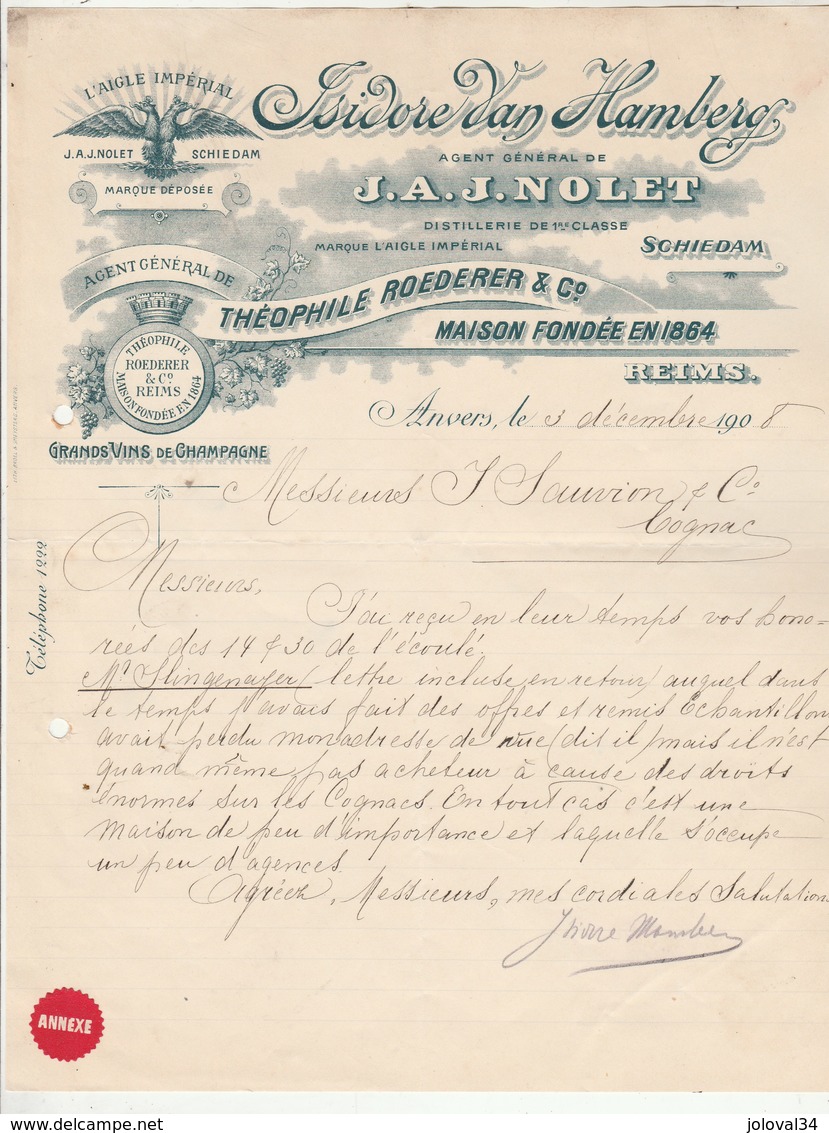 L'AIGLE IMPÉRIAL
J.A.J. NOLET SCHIEDAM
MARQUE DÉPOSÉE
Isidore Van Hamberg
AGENT GÉNÉRAL DE
J.A.J. NOLET
DISTILLERIE DE 1RE CLASSE
MARQUE L'AIGLE IMPÉRIAL
SCHIEDAM
AGENT GÉNÉRAL DE
THÉOPHILE ROEDERER & Co
MAISON FONDÉE EN 1864
REIMS.
THÉOPHILE
ROEDERER
& Co
REIMS
MAISON FONDÉE EN 1864
GRANDS VINS DE CHAMPAGNE
Téléphone 1222
Anvers, le 3 décembre 1908
Messieurs J Sauvion & Co
Cognac
Messieurs,
J'ai reçu en leur temps vos hono-
rées des 14 & 30 de l'écoulé.
Mr Slingenayer (lettre incluse en retour) auquel dans
le temps j'avais fait des offres et remis Echantillon
avait perdu mon adresse de vue (dit il) mais il n'est
quand même pas acheteur à cause des droits
énormes sur les Cognacs. En tout cas c'est une
maison de peu d'importance et laquelle s'occupe
un peu d'agences.
Agréez, Messieurs, mes cordiales Salutations
ANNEXE
© delcampe.net
joloval34